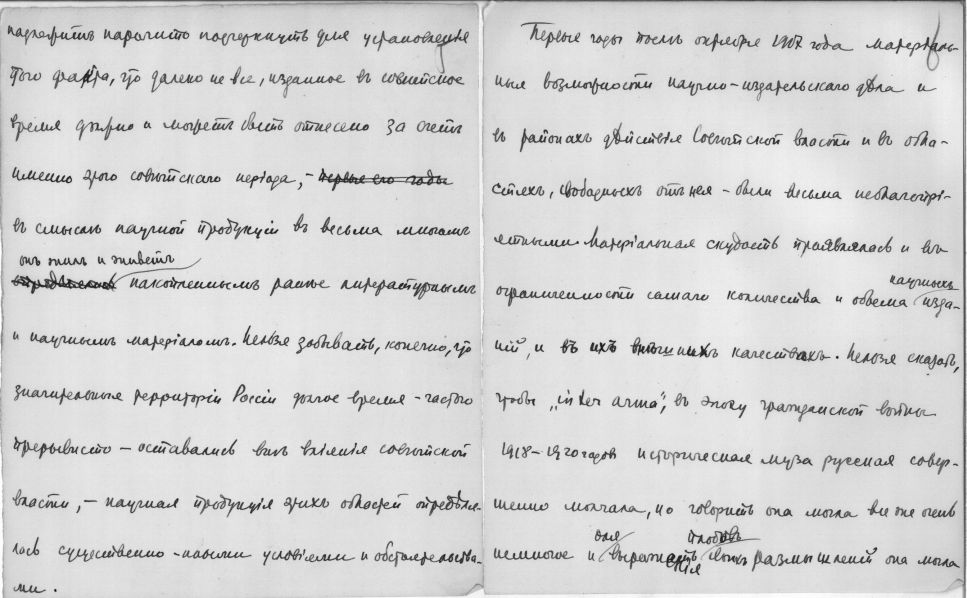 надлежитъ нарочито подчеркнуть для установленія
того факта, что далеко не все, изданное въ совѣтское
время дѣльно и можетъ быть отнесено за счетъ
именно этого совѣтскаго періода, – первые его годы
въ смыслѣ научной продукціи въ весьма многомъ
онъ жилъ и живетъ
накопленнымъ ранѣе литературнымъ
и научнымъ матеріаломъ. Нельзя забывать, конечно, что
значительныя территоріи Россіи долгое время – часто
прерывисто – оставались внѣ вліянія совѣтской
власти, – научная продукція этихъ областей опредѣля-
лась существенно-иными условіями и обстоятельства-
ми.
Первые годы послѣ октября 1917 года матеріаль-
ныя возможности научно-издательскаго дѣла и
въ районахъ дѣйствія Совѣтской власти и въ обла-
стяхъ, свободныхъ отъ нея – были весьма неблагопрі-
ятными. Матеріальная скудость проявлялась и въ
научныхъ
ограниченности самаго количества и объема изда-
ній, и въ ихъ внѣшнихъ качествахъ. Нельзя сказать,
чтобы „inter arma", въ эпоху гражданской войны
1918–1920 годовъ историческая муза русская совер-
шенно молчала, но говорить она могла все же очень
для плодовъ
немногое и выраженія своихъ размышленій она могла